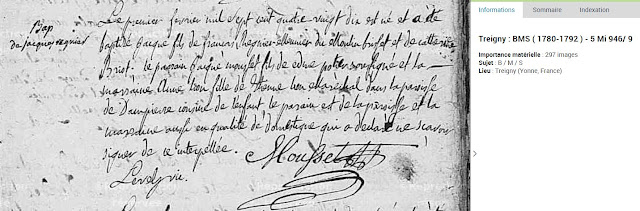 Bap
de jacque regnier
Le premier fevrier mil sept cent quatre vingt dix est né et a été
baptisé jacque fils de francois Regnier meunier du moulin buffet et de catherine
Briot. le parrain jacque mousset fils de edme potier et la
marraine Anne fille de Etienne marechal dans la paroisse
de Dampierre cousine de lenfant le parain est de la paroisse et la
maraine aussi en qualité de domestique qui a declaré ne scavoir
signer de ce interpellée.
Mousset
Informations
Sommaire
Indexation
Treigny : BMS ( 1780-1792 ) - 5 Mi 946/ 9
Importance matérielle : 297 images
Sujet : B / M / S
Lieu : Treigny (Yonne, France)